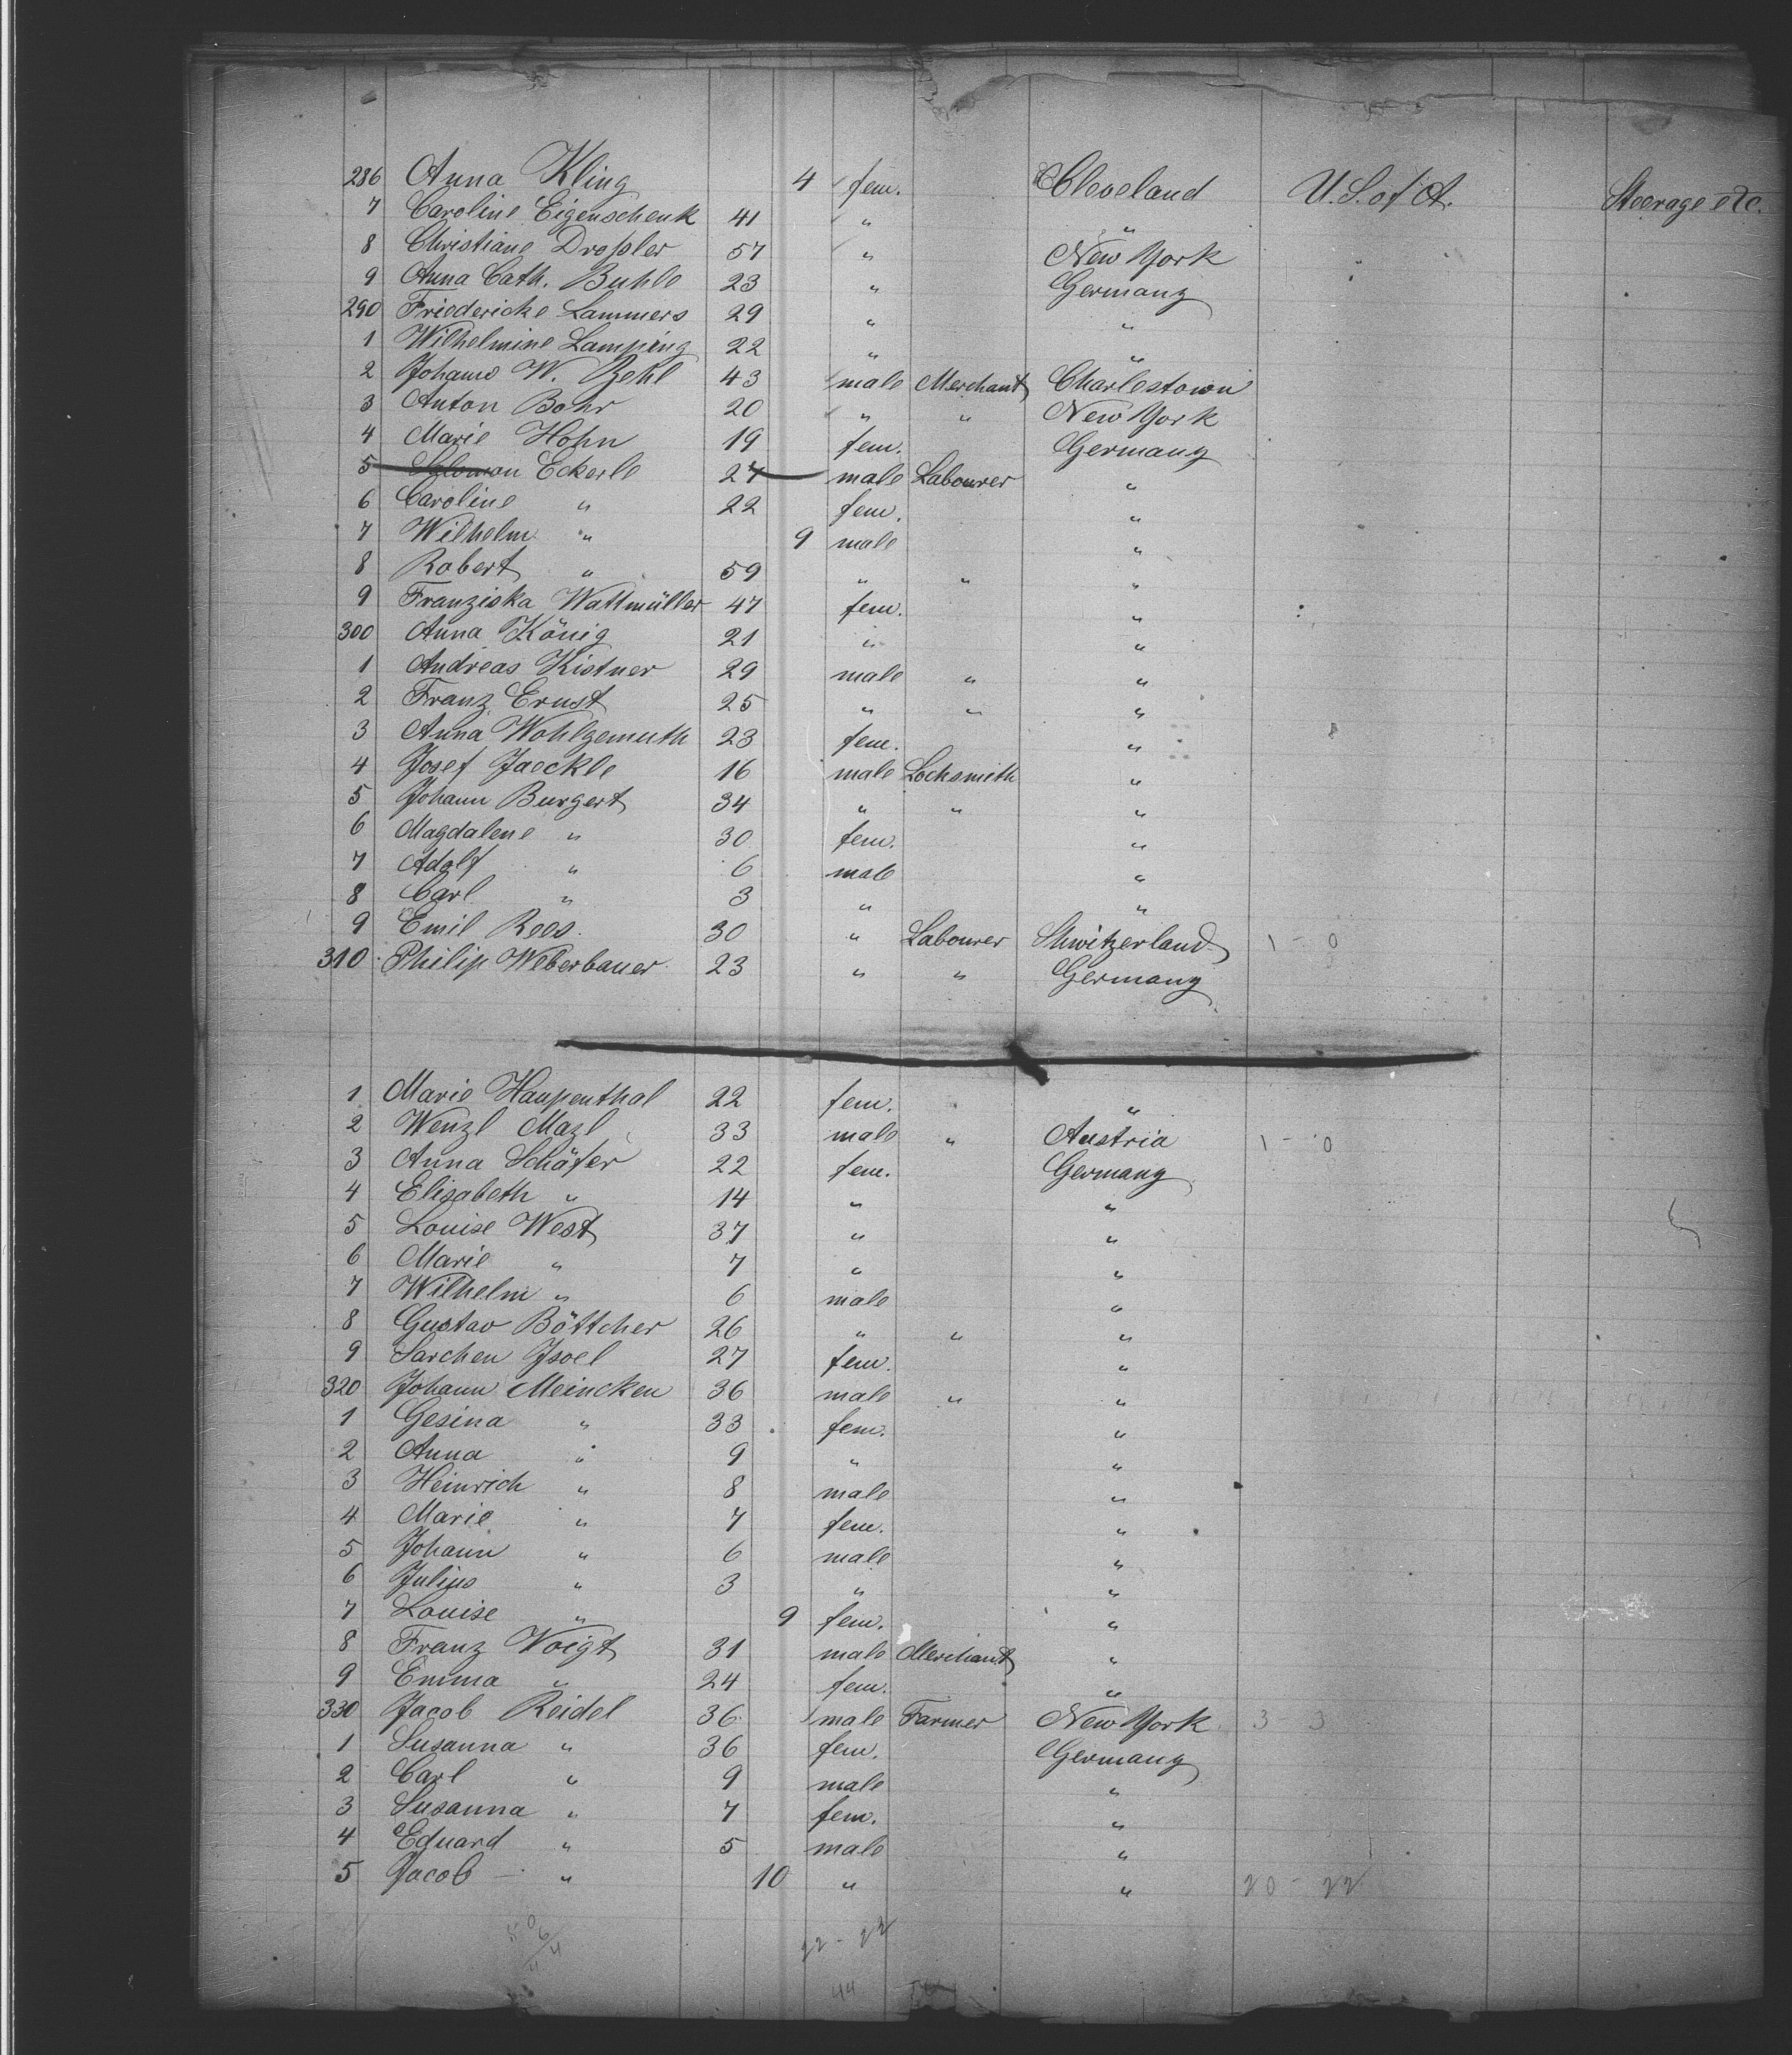 286 Anna Kling 4 fem. Cleveland U.S. of A. Steerage etc.
7 Caroline Eigenschenk 41 " "
8 Christiane Drossler 57 " New York
9 Anna Cath. Buhle 23 " Germany
290 Friedericke Lammers 29 " "
1 Wilhelmine Lamping 22 " "
2 Johann W. 43 male Merchant Charlestown
3 Anton Bohr 20 " " New York
4 Marie Hohn 19 fem. Germany
5 Salomon Eckerle 27 male Labourer "
6 Caroline " 22 fem. "
7 Wilhelm " 9 male "
8 Robert " 59 " " "
9 Franziska Wattmüller 47 fem. "
300 Anna König 21 " "
1 Andreas Kistner 29 male " "
2 Franz Ernst 25 " " "
3 Anna Wohlgemuth 23 fem. "
4 Josef Jaeckle 16 male Locksmith "
5 Johann Burgert 34 " " "
6 Magdalene " 30 fem. "
7 Adolf " 6 male "
8 Carl " 3 " "
9 Emil Rees 30 " Labourer Shwitzerland 1 - 0
310 Philip Weberbauer 23 " " Germany
1 Marie Haupenthal 22 fem. "
2 Wenzl Mazl 33 male " Austria 1 - 0
3 Anna Schäfer 22 fem. Germany
4 Elisabeth " 14 " "
5 Louise West 37 " "
6 Marie " 7 " "
7 Wilhelm " 6 male "
8 Gustav Böttcher 26 " " "
9 Sarchen Jsoel 27 fem. "
320 Johann Meincken 36 male " "
1 Gesina " 33 fem. "
2 Anna " 9 " "
3 Heinrich " 8 male "
4 Marie " 7 fem. "
5 Johann " 6 male "
6 Julius " 3 " "
7 Louise " 9 fem. "
8 Franz Voigt 31 male Merchant "
9 Emma " 24 fem. "
330 Jacob Reidel 36 male Farmer New York 3 - 3
1 Susanna " 36 fem. Germany
2 Carl " 9 male "
3 Susanna " 7 fem. "
4 Eduard " 5 male "
5 Jacob " 10 " " 20 - 22
22 - 22
44